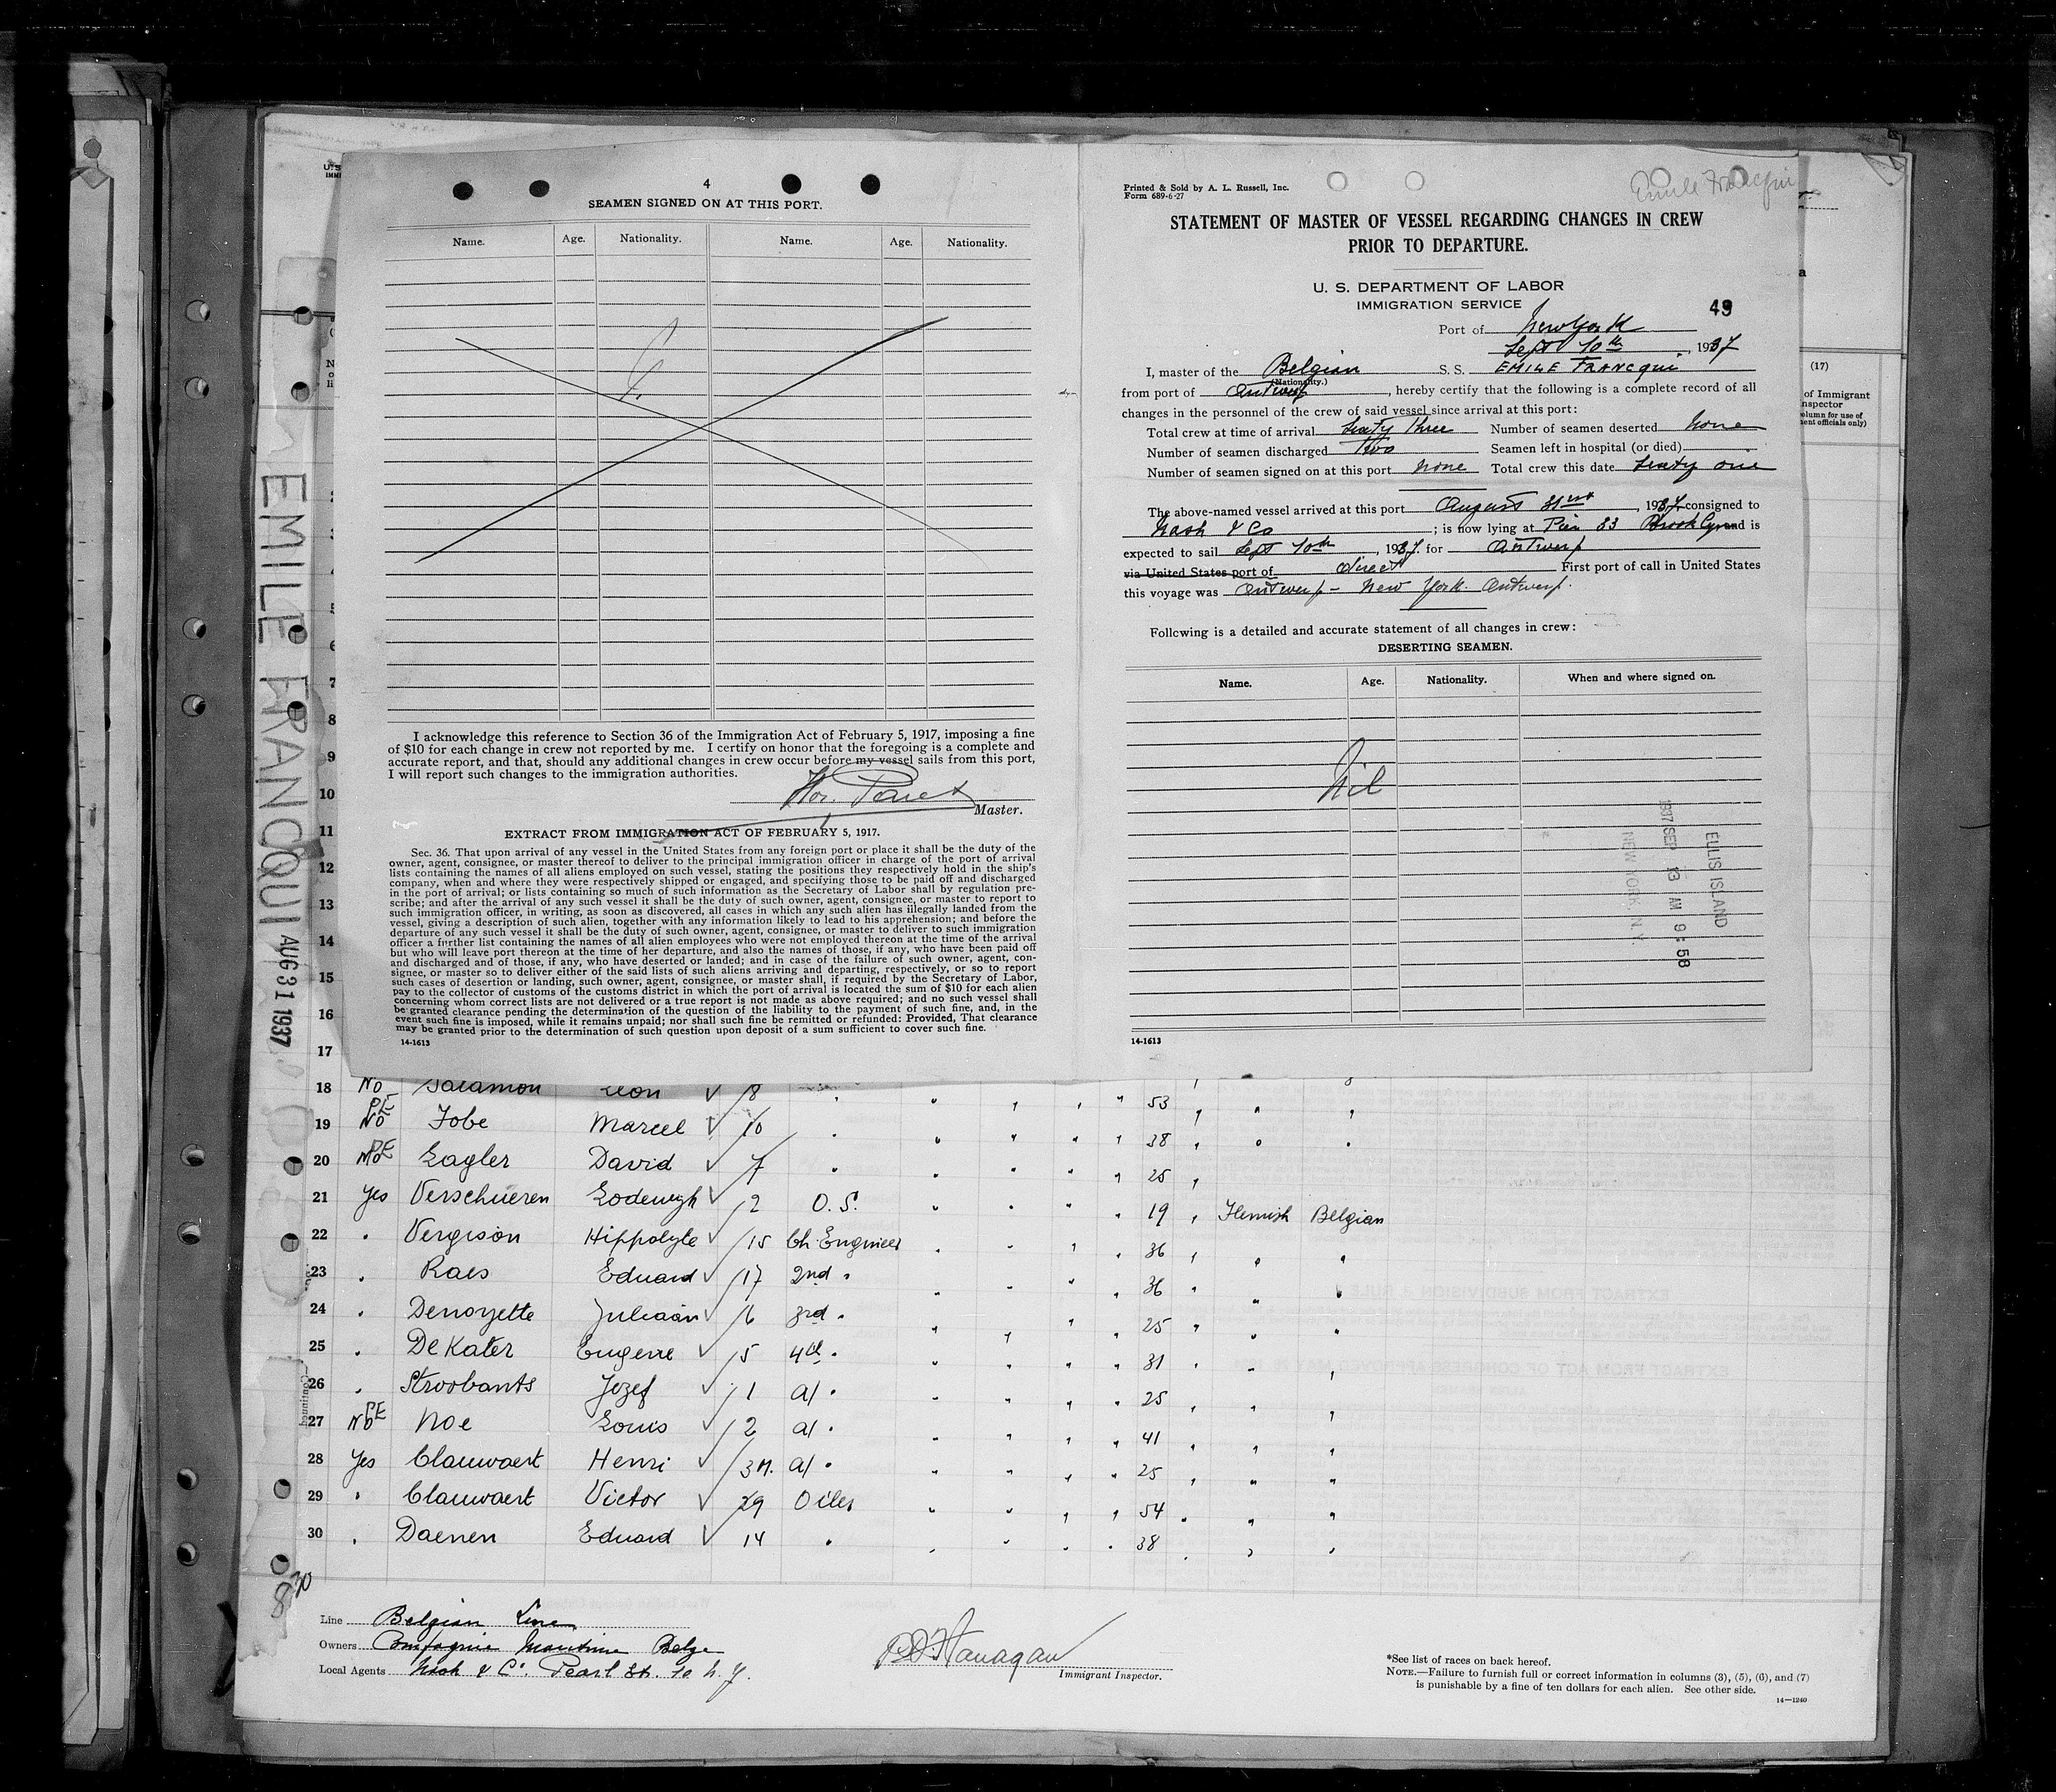 4
SEAMEN SIGNED ON AT THIS PORT.
Name. Age. Nationality. Name. Age. Nationality.
I acknowledge this reference to Section 36 of the Immigration Act of February 5, 1917, imposing a fine
of $10 for each change in crew not reported by me. I certify on honor that the foregoing is a complete and
accurate report, and that, should any additional changes in crew occur before my vessel sails from this port,
I will report such changes to the immigration authorities.
Master.
EXTRACT FROM IMMIGRATION ACT OF FEBRUARY 5, 1917.
Sec. 36. That upon arrival of any vessel in the United States from any foreign port or place it shall be the duty of the
owner, agent, consignee, or master thereof to deliver to the principal immigration officer in charge of the port of arrival
lists containing the names of all aliens employed on such vessel, stating the positions they respectively hold in the ship's
company, when and where they were respectively shipped or engaged, and specifying those to be paid off and discharged
in the port of arrival; or lists containing so much of such information as the Secretary of Labor shall by regulation pre-
scribe; and after the arrival of any such vessel it shall be the duty of such owner, agent, consignee, or master to report to
such immigration officer, in writing, as soon as discovered, all cases in which any such alien has illegally landed from the
vessel, giving a description of such alien, together with any information likely to lead to his apprehension; and before the
departure of any such vessel it shall be the duty of such owner, agent, consignee, or master to deliver to such immigration
officer a further list containing the names of all alien employees who were not employed thereon at the time of the arrival
but who will leave port thereon at the time of her departure, and also the names of those, if any, who have been paid off
and discharged and of those, if any, who have deserted or landed; and in case of the failure of such owner, agent, con-
signee, or master so to deliver either of the said lists of such aliens arriving and departing, respectively, or so to report
such cases of desertion or landing, such owner, agent, consignee, or master shall, if required by the Secretary of Labor,
pay to the collector of customs of the customs district in which the port of arrival is located the sum of $10 for each alien
concerning whom correct lists are not delivered or a true report is not made as above required; and no such vessel shall
be granted clearance pending the determination of the question of the liability to the payment of such fine, and, in the
event such fine is imposed, while it remains unpaid; nor shall such fine be remitted or refunded: Provided, That clearance
may be granted prior to the determination of such question upon deposit of a sum sufficient to cover such fine.
14-1613
Printed & Sold by A. L. Russell, Inc.
Form 689-6-27
Emile Francqui
STATEMENT OF MASTER OF VESSEL REGARDING CHANGES IN CREW
PRIOR TO DEPARTURE.
U. S. DEPARTMENT OF LABOR
IMMIGRATION SERVICE
49
Port of New York
Sept 10th, 1937
I, master of the Belgian S. S. EMILE FRANCQUI
(Nationality.)
from port of Antwerp, hereby certify that the following is a complete record of all
changes in the personnel of the crew of said vessel since arrival at this port:
Total crew at time of arrival Sixty three Number of seamen deserted None
Number of seamen discharged Two Seamen left in hospital (or died)
Number of seamen signed on at this port None Total crew this date Sixty one
The above-named vessel arrived at this port August 31st, 1937 consigned to
Nash & Co; is now lying at Pier 33 Brooklyn and is
expected to sail Sept 10th, 1937 for Antwerp
via United States port of direct First port of call in United States
this voyage was Antwerp - New York - Antwerp.
Following is a detailed and accurate statement of all changes in crew:
DESERTING SEAMEN.
Name. Age. Nationality. When and where signed on.
Nil
ELLIS ISLAND
1937 SEP 13 AM 9:58
NEW YORK, N.Y.
14-1613
(17)
of Immigrant
nspector
olumn for use of
ent officials only)
EMILE FRANCQUI
AUG 31 1937
7
8
9
10
11
12
13
14
15
16
17
18 No Salamon Leon 8 " " " " " 53 " " "
19 PE No Jobe Marcel 10 " " " " " 38 " " "
20 PE No Lagler David 7 " " " " " 25 "
21 Yes Verschueren Lodewyk 2 O.S. " " " " 19 " Flemish Belgian
22 " Vergison Hippolyte 15 Ch. Engineer " " " " 36 " " "
23 " Raes Eduard 17 2nd " " " " " 36 " " "
24 " Denoyette Juliaan 6 3rd " " " " " 25 " " "
25 " De Kater Eugene 5 4th " " " " " 31 " " "
26 " Stroobants Jozef 1 a/ " " " " " 25 " " "
27 PE No Noe Louis 2 a/ " " " " " 41 " " "
28 Yes Clauwaert Henri 3 M. a/ " " " " " 25 " " "
29 " Clauwaert Victor 29 Oiler " " " " 54 " " "
30 " Daenen Eduard 14 " " " " " 38 " " "
30
Line Belgian Line
Owners Compagnie Maritime Belge
Local Agents Nash & Co. Pearl Str. N.Y.
Immigrant Inspector.
*See list of races on back hereof.
NOTE.—Failure to furnish full or correct information in columns (3), (5), (6), and (7)
is punishable by a fine of ten dollars for each alien. See other side.
14-1240